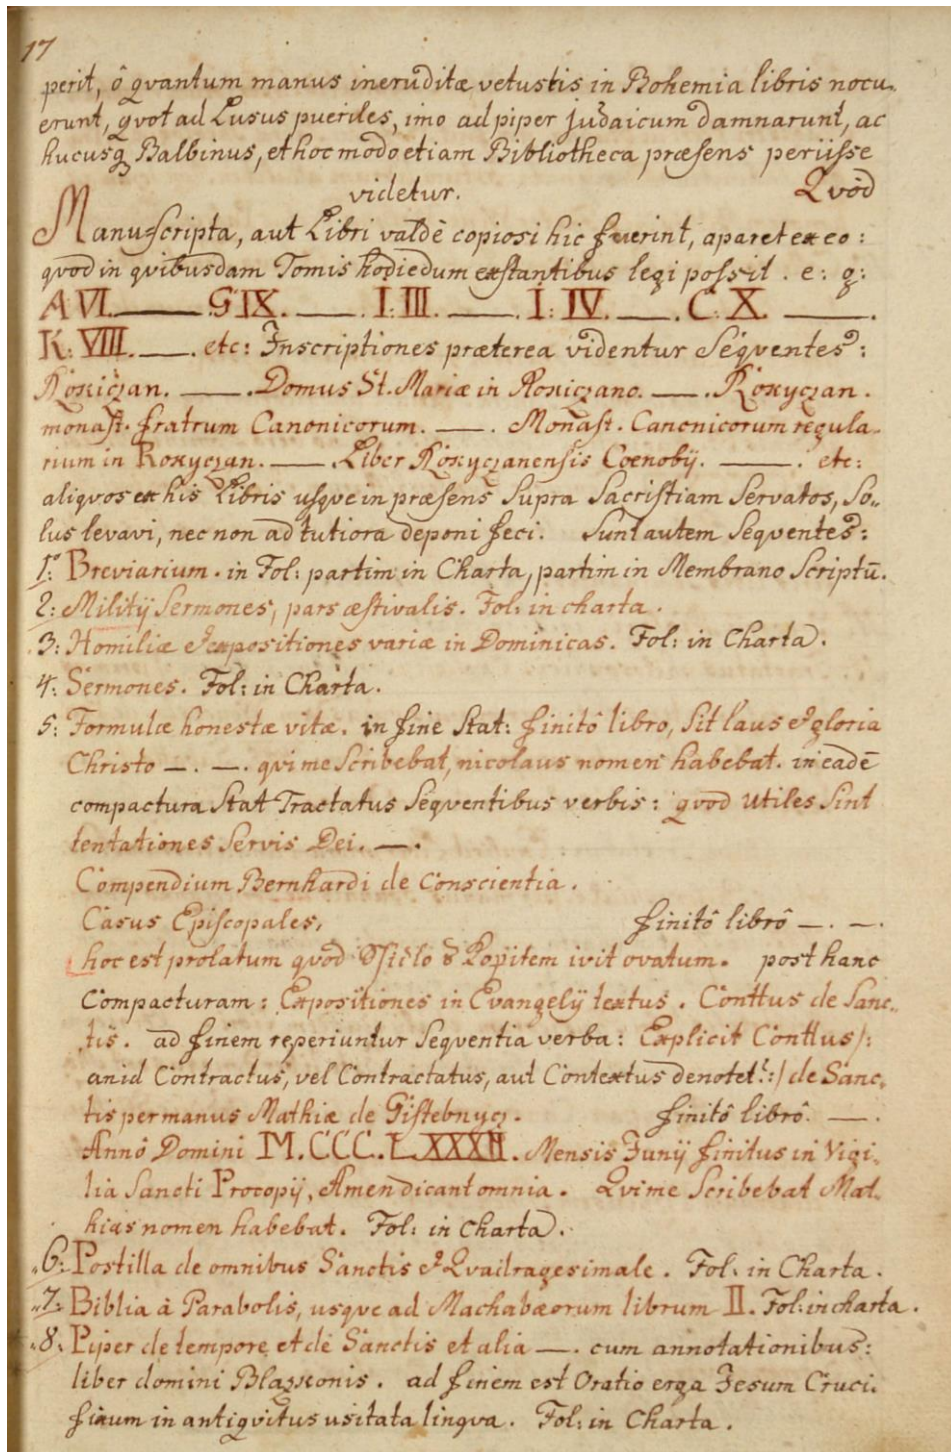 17
perit, ô qvantum manus ineruditæ vetustis in Bohemia libris nocu„
erunt, qvot ad Lusus pueriles, imo ad piper judaicum damnarunt, ac
hucusq Balbinus, et hoc modo etiam Bibliotheca præsens periisse
videtur. Qvòd
Manuscripta, aut Libri valdè copiosi hic fuerint, aparet ex eo:
qvod in qvibusdam Tomis hodiedum exstantibus legi possit. e: g:
A VI. —— . G IX. —— . I: III. —— . I: IV. —— . C: X. —— .
K: VIII. —— . etc: Inscriptiones præterea videntur Seqventes:
Roxiczan. —— . Domus St. Mariæ in Roxiczano. —— . Roxyczan.
monast. fratrum Canonicorum. —— . Monast. Canonicorum regula„
rium in Roxyczan. —— . Liber Roxyczanensis Coenobÿ. —— . etc:
aliqvos ex his Libris usqve in præsens Supra Sacristiam Servatos, So„
lus levavi, nec non ad tutiora deponi feci. Sunt autem Seqventes:
1º: Breviarium. in Fol: partim in Charta, partim in Membrano Scriptū.
2: Militÿ Sermones, pars æstivalis. Fol: in charta.
3: Homiliæ & expositiones variæ in Dominicas. Fol: in Charta.
4: Sermones. Fol: in Charta.
5: Formulæ honestæ vitæ. in fine Stat: finitô libro, Sit laus & gloria
Christo — . — . qvi me Scribebat, nicolaus nomen habebat. in eadē
compactura Stat Tractatus Seqventibus verbis: qvod utiles Sint
tentationes Servis Dei. — .
Compendium Bernhardi de Conscientia.
Casus Episcopales, finitô librô — . — .
hoc est prolatum qvod 8 Popitem ivit ovatum. post hanc
Compacturam: Expositiones in Evangelÿ textus. Conttus de Sanc„
tis. ad finem reperiuntur Seqventia verba: Explicit Conttus /:
an id Contractus, vel Contractatus, aut Contextus denotet? :/ de Sanc„
tis per manus Mathiæ de Gistebnycz. finitô librô. — .
Annô Domini M.CCC.L.XXXII. Mensis Junÿ finitus in Vigi„
lia Sancti Procopÿ, Amen dicant omnia. Qvi me Scribebat Mat„
hias nomen habebat. Fol: in Charta.
6: Postilla de omnibus Sanctis & Qvadragesimale. Fol: in Charta.
7: Biblia à Parabolis, usqve ad Machabæorum librum II. Fol: in charta.
8: Piper de tempore et de Sanctis et alia — . cum annotationibus:
liber domini Blazkonis. ad finem est Oratio erga Jesum Cruci„
fixum in antiqvitus usitata lingva. Fol: in Charta.